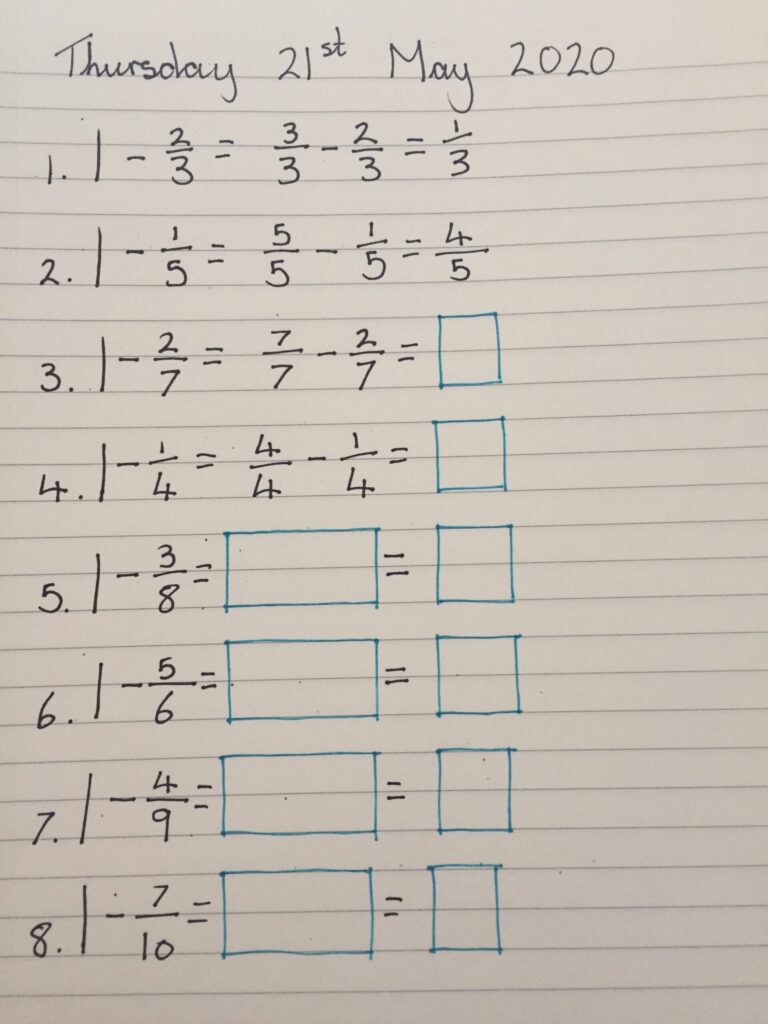 Thursday 21st May 2020
1. 1 - 2/3 = 3/3 - 2/3 = 1/3
2. 1 - 1/5 = 5/5 - 1/5 = 4/5
3. 1 - 2/7 = 7/7 - 2/7 =
4. 1 - 1/4 = 4/4 - 1/4 =
5. 1 - 3/8 = =
6. 1 - 5/6 = =
7. 1 - 4/9 = =
8. 1 - 7/10 = =